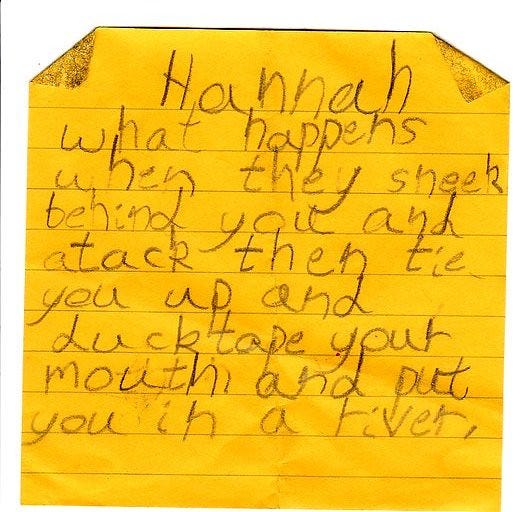 Hannah
what happens
when they sneek
behind you and
atack then tie
you up and
ducktape your
mouth and put
you in a river.